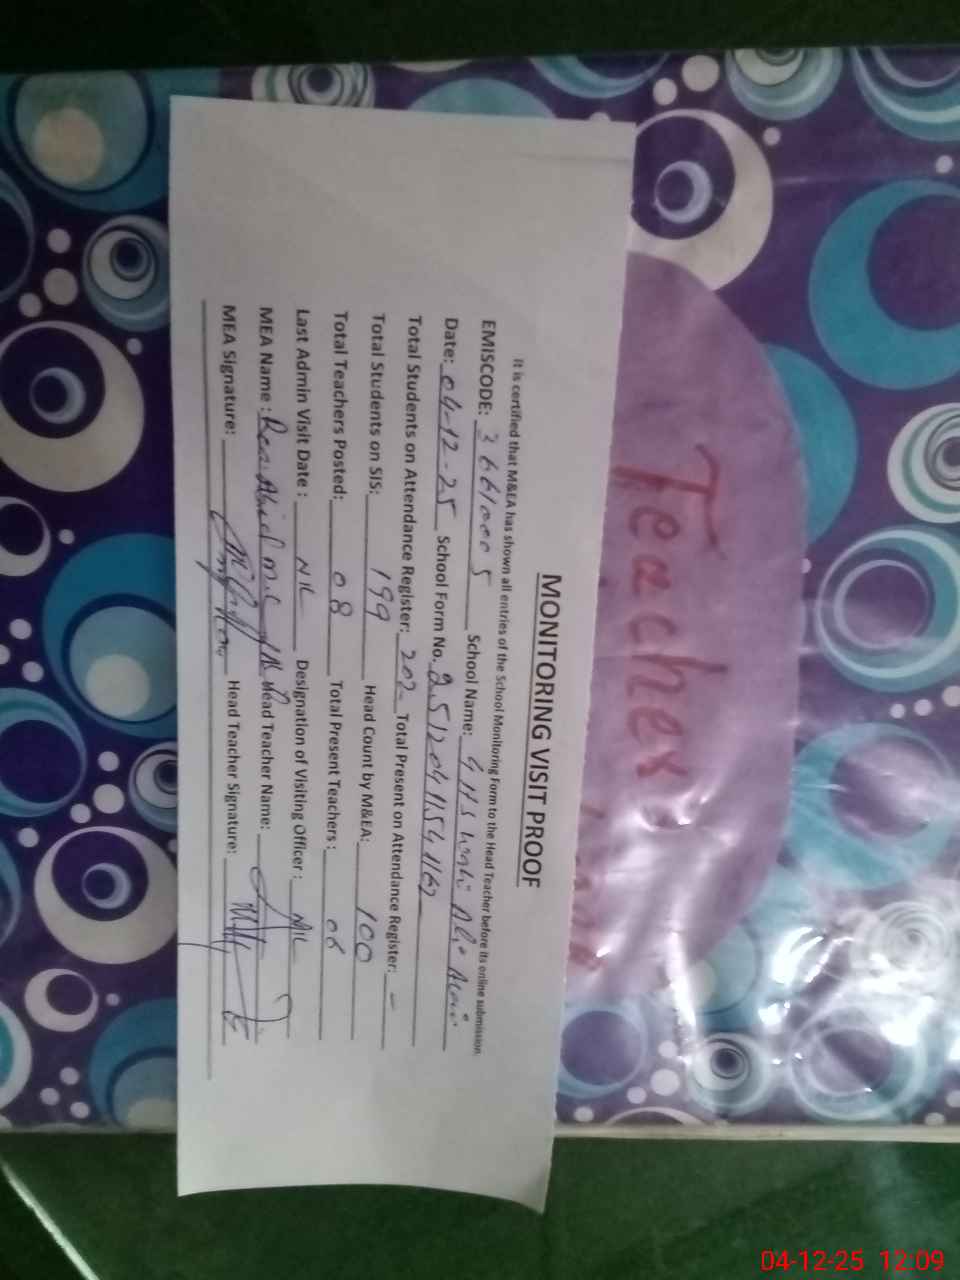 MONITORING VISIT PROOF
It is certified that M&EA has shown all entries of the School Monitoring Form to the Head Teacher before its online submission.
EMISCODE: 36610005 School Name: GHS Wahi Ali Arain
Date: 04-12-25 School Form No.
Total Students on Attendance Register: 202 Total Present on Attendance Register: -
Total Students on SIS: 199 Head Count by M&EA: 100
Total Teachers Posted: 08 Total Present Teachers: 08
Last Admin Visit Date: NIL Designation of Visiting Officer: NIL
MEA Name: Head Teacher Name:
MEA Signature: Head Teacher Signature:
Teacher
04-12-25 12:09